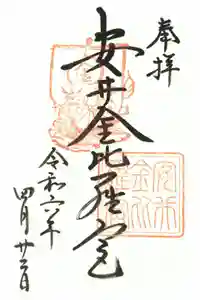 奉拝
安井金比羅宮
令和六年
四月廿三日